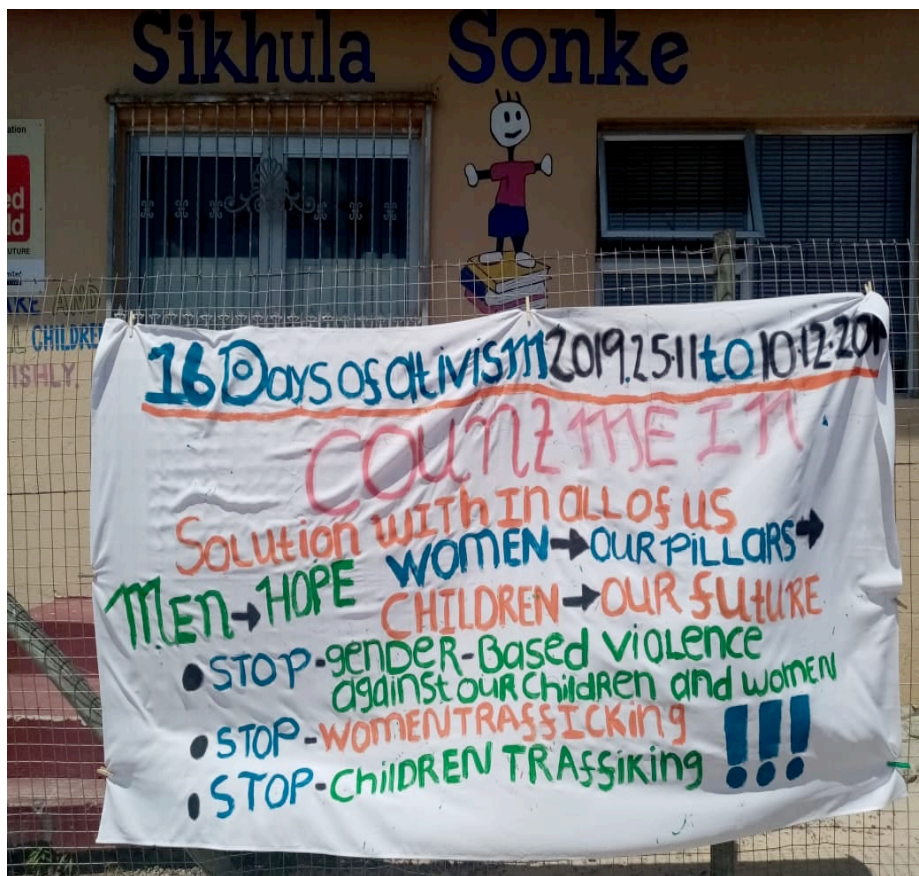 Sikhula Sonke
ation
ed
ld
UTURE
AND
CHILDRE
ISHLY.
16 Days of ativism 2019.25.11 to 10.12.201
COUNT ME IN
Solution WITHIN ALL OF US
WOMEN → OUR PILLARS →
MEN → HOPE
CHILDREN → OUR FUTURE
• STOP - gENDER-BASED VIOLENCE
against our children and women
• STOP - WOMEN TRAFFICKING
• STOP - CHILDREN TRAFFIKING !!!